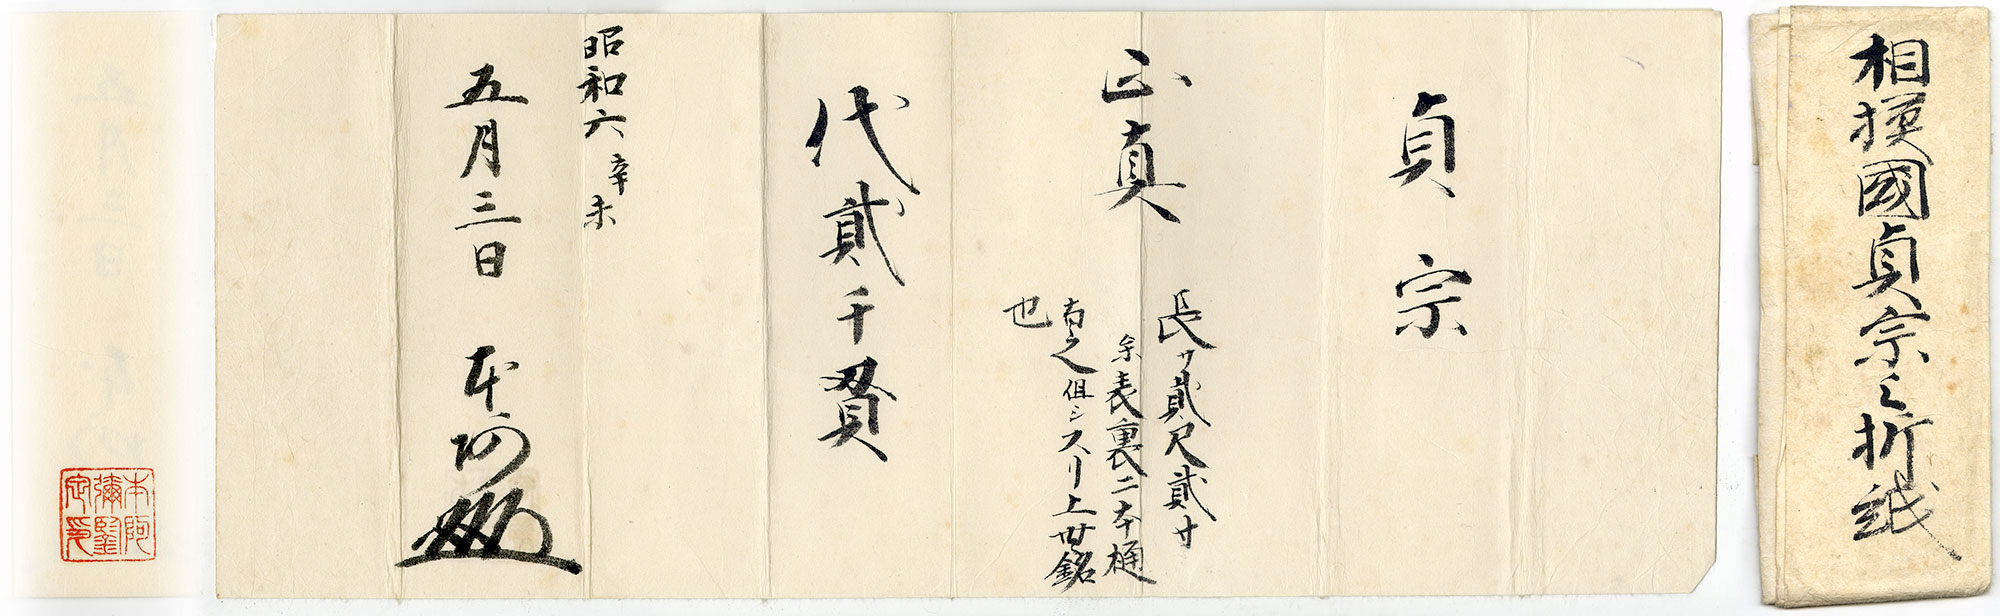 相摸國貞宗之折紙
貞宗
正真
長サ貳尺貳寸
余表裏二本樋
有之但シスリ上無銘
也
代貳千貫
昭和六辛未
五月三日 本阿
本阿
彌鑒
定印